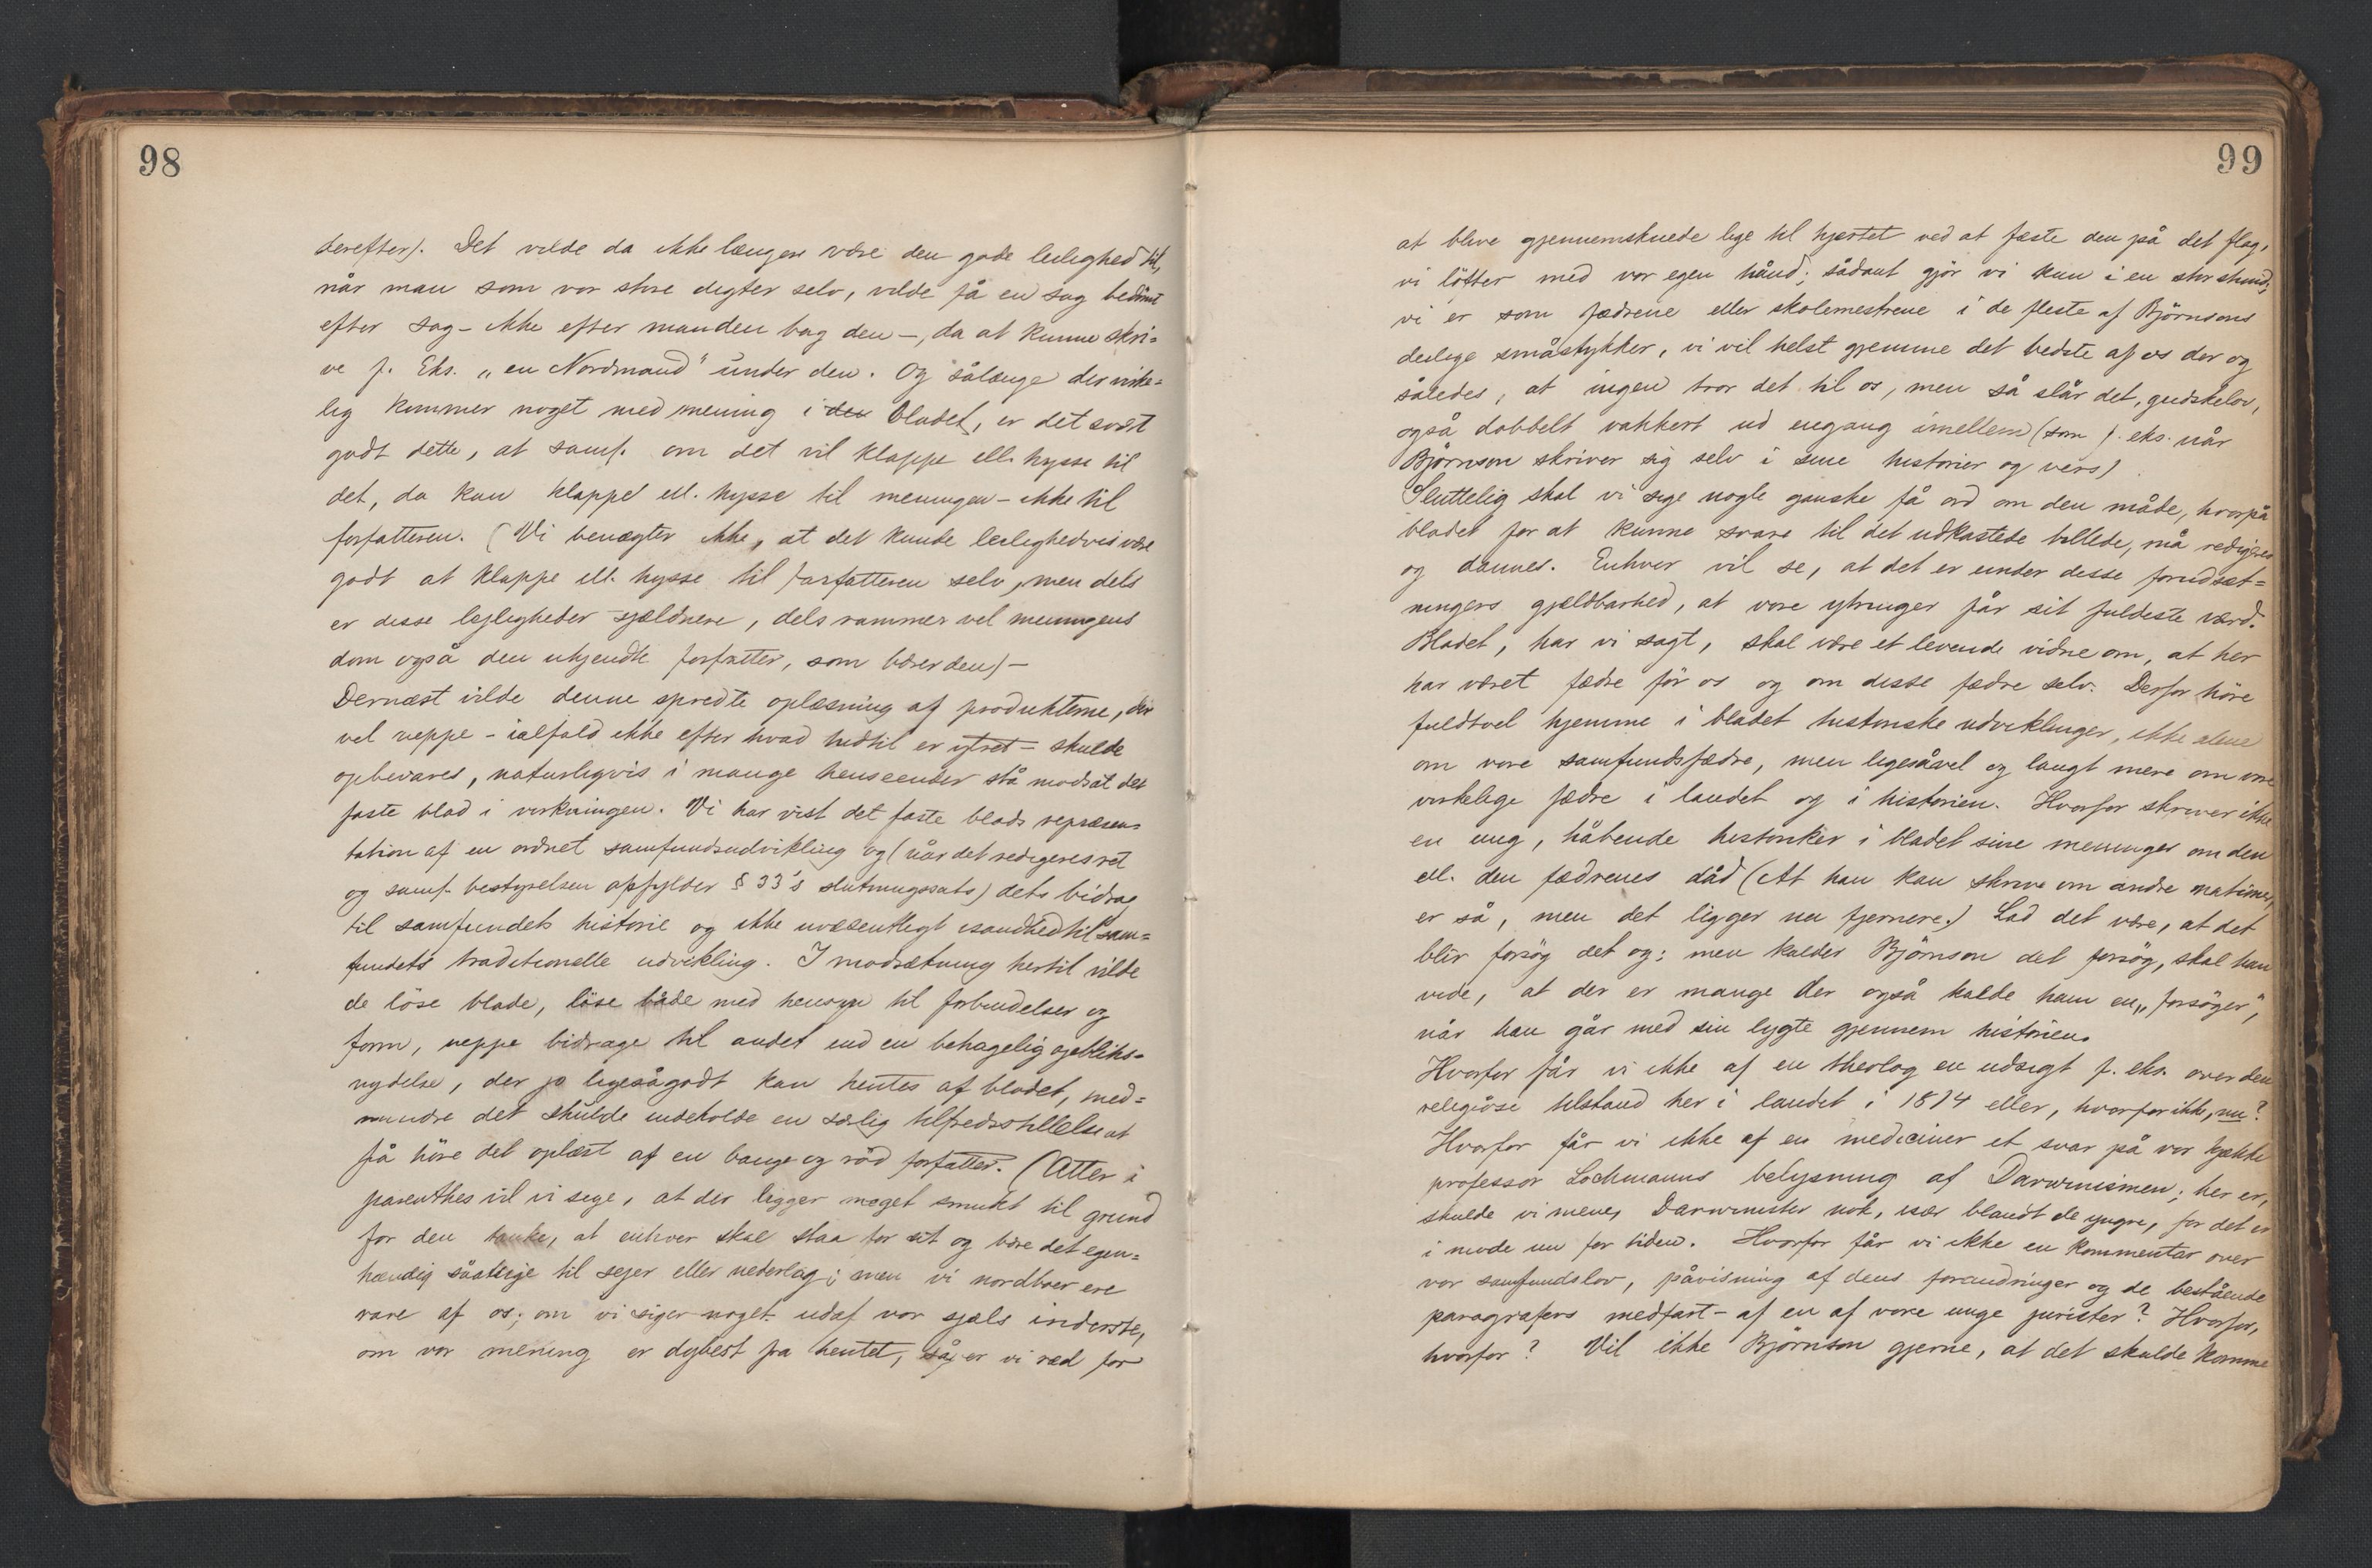 98
derefter). Det vilde da ikke længere være den gode leilighed til,
når man som vor store digter selv, vilde få en sag bedömt
efter sag - ikke efter manden bag den -, da at kunne skri=
ve f. Eks. „en Nordmand" under den. Og sålænge der virke=
lig kommer noget med mening i den bladet, er det svært
godt dette, at samf. om det vil klappe ell. hysse til
det, da kan klappe ell. hysse til meningen - ikke til
forfatteren. (Vi benægter ikke, at det kunde leilighedvis være
godt at klappe ell. hysse til forfatteren selv, men dels
er disse lejligheder sjældnere, dels rammer vel meningens
dom også den ukjendte forfatter, som bærer den) -
Dernæst vilde denne spredte oplæsning af produkterne, der
vel neppe - ialfald ikke efter hvad hidtil er ytret - skulde
opbevares, naturligvis i mange henseender stå modsat det
faste blad i virkningen. Vi har vist det faste blads repræsen=
tation af en ordnet samfundsudvikling og (når det redigeres ret
og samf. bestyrelsen opfylder § 33's slutningssats) dets bidrag
til samfundets historie og ikke uvæsentligt isandhed til sam=
fundets traditionelle udvikling. I modsætning hertil vilde
de löse blade, löse både med hensyn til forbindelser og
form, neppe bidrage til andet end en behagelig ojebliks=
nydelse, der jo ligesågodt kan hentes af bladet, med=
mindre det skulde indeholde en særlig tilfredsstillelse at
få höre det oplæst af en bange og röd forfatter. (Atter i
parenthes vil vi sige, at der ligger noget smukt til grund
for den tanke, at enhver skal staa for sit og bære det egen=
hændig såatsige til sejer eller nederlag; men vi nordboer ere
rare af os; om vi siger noget udaf vor sjæls inderste,
om vor mening er dybest fra hentet, så er vi ræd for
99
at blive gjennemskuede lige til hjærtet ved at fæste den på det flag,
vi löfter med vor egen hånd; sådant gjör vi kun i en stor stund;
vi er som fædrene eller skolemestrene i de fleste af Björnsons
deilige småstykker, vi vil helst gjemme det bedste af os der og
således, at ingen tror det til os, men så slår det, gudskelov,
også dobbelt vakkert ud engang imellem (som f. eks. når
Björnson skriver sig selv i sine historier og vers).
Sluttelig skal vi sige nogle ganske få ord om den måde, hvorpå
bladet for at kunne svare til det udkastede billede, må redigeres
og dannes. Enhver vil se, at det er under disse forudsæt=
ningers gjældbarhed, at vore ytringer får sit fuldeste værd.
Bladet, har vi sagt, skal være et levende vidne om, at her
har været fædre för os og om disse fædre selv. Derfor höre
fuldtvel hjemme i bladet historiske udviklinger, ikke alene
om vore samfundsfædre, men ligesåvel og langt mere om vore
virkelige fædre i landet og i historien. Hvorfor skriver ikke
en ung, håbende historiker i bladet sine meninger om den
ell. den fædrenes dåd (At han kan skrive om andre nationer,
er så, men det ligger nu fjernere.) Lad det være, at det
blir forsög det og: men kalder Björnson det forsög, skal han
vide, at der er mange der også kalde ham en „forsöger",
når han går med sin lygte gjennem historien.
Hvorfor får vi ikke af en theolog en udsigt f. eks. over den
religiöse tilstand her i landet i 1814 eller, hvorfor ikke, nu?
Hvorfor får vi ikke af en mediciner et svar på vor kjække
professor Lochmanns belysning af Darwinismen; her er,
skulde vi mene, Darwinister nok, især blandt de yngre, for det er
i mode nu for tiden. Hvorfor får vi ikke en kommentar over
vor samfundslov, påvisning af dens forandringer og de bestående
paragrafers medfart - af en af vore unge jurister? Hvorfor,
hvorfor? Vil ikke Björnson gjerne, at det skulde komme